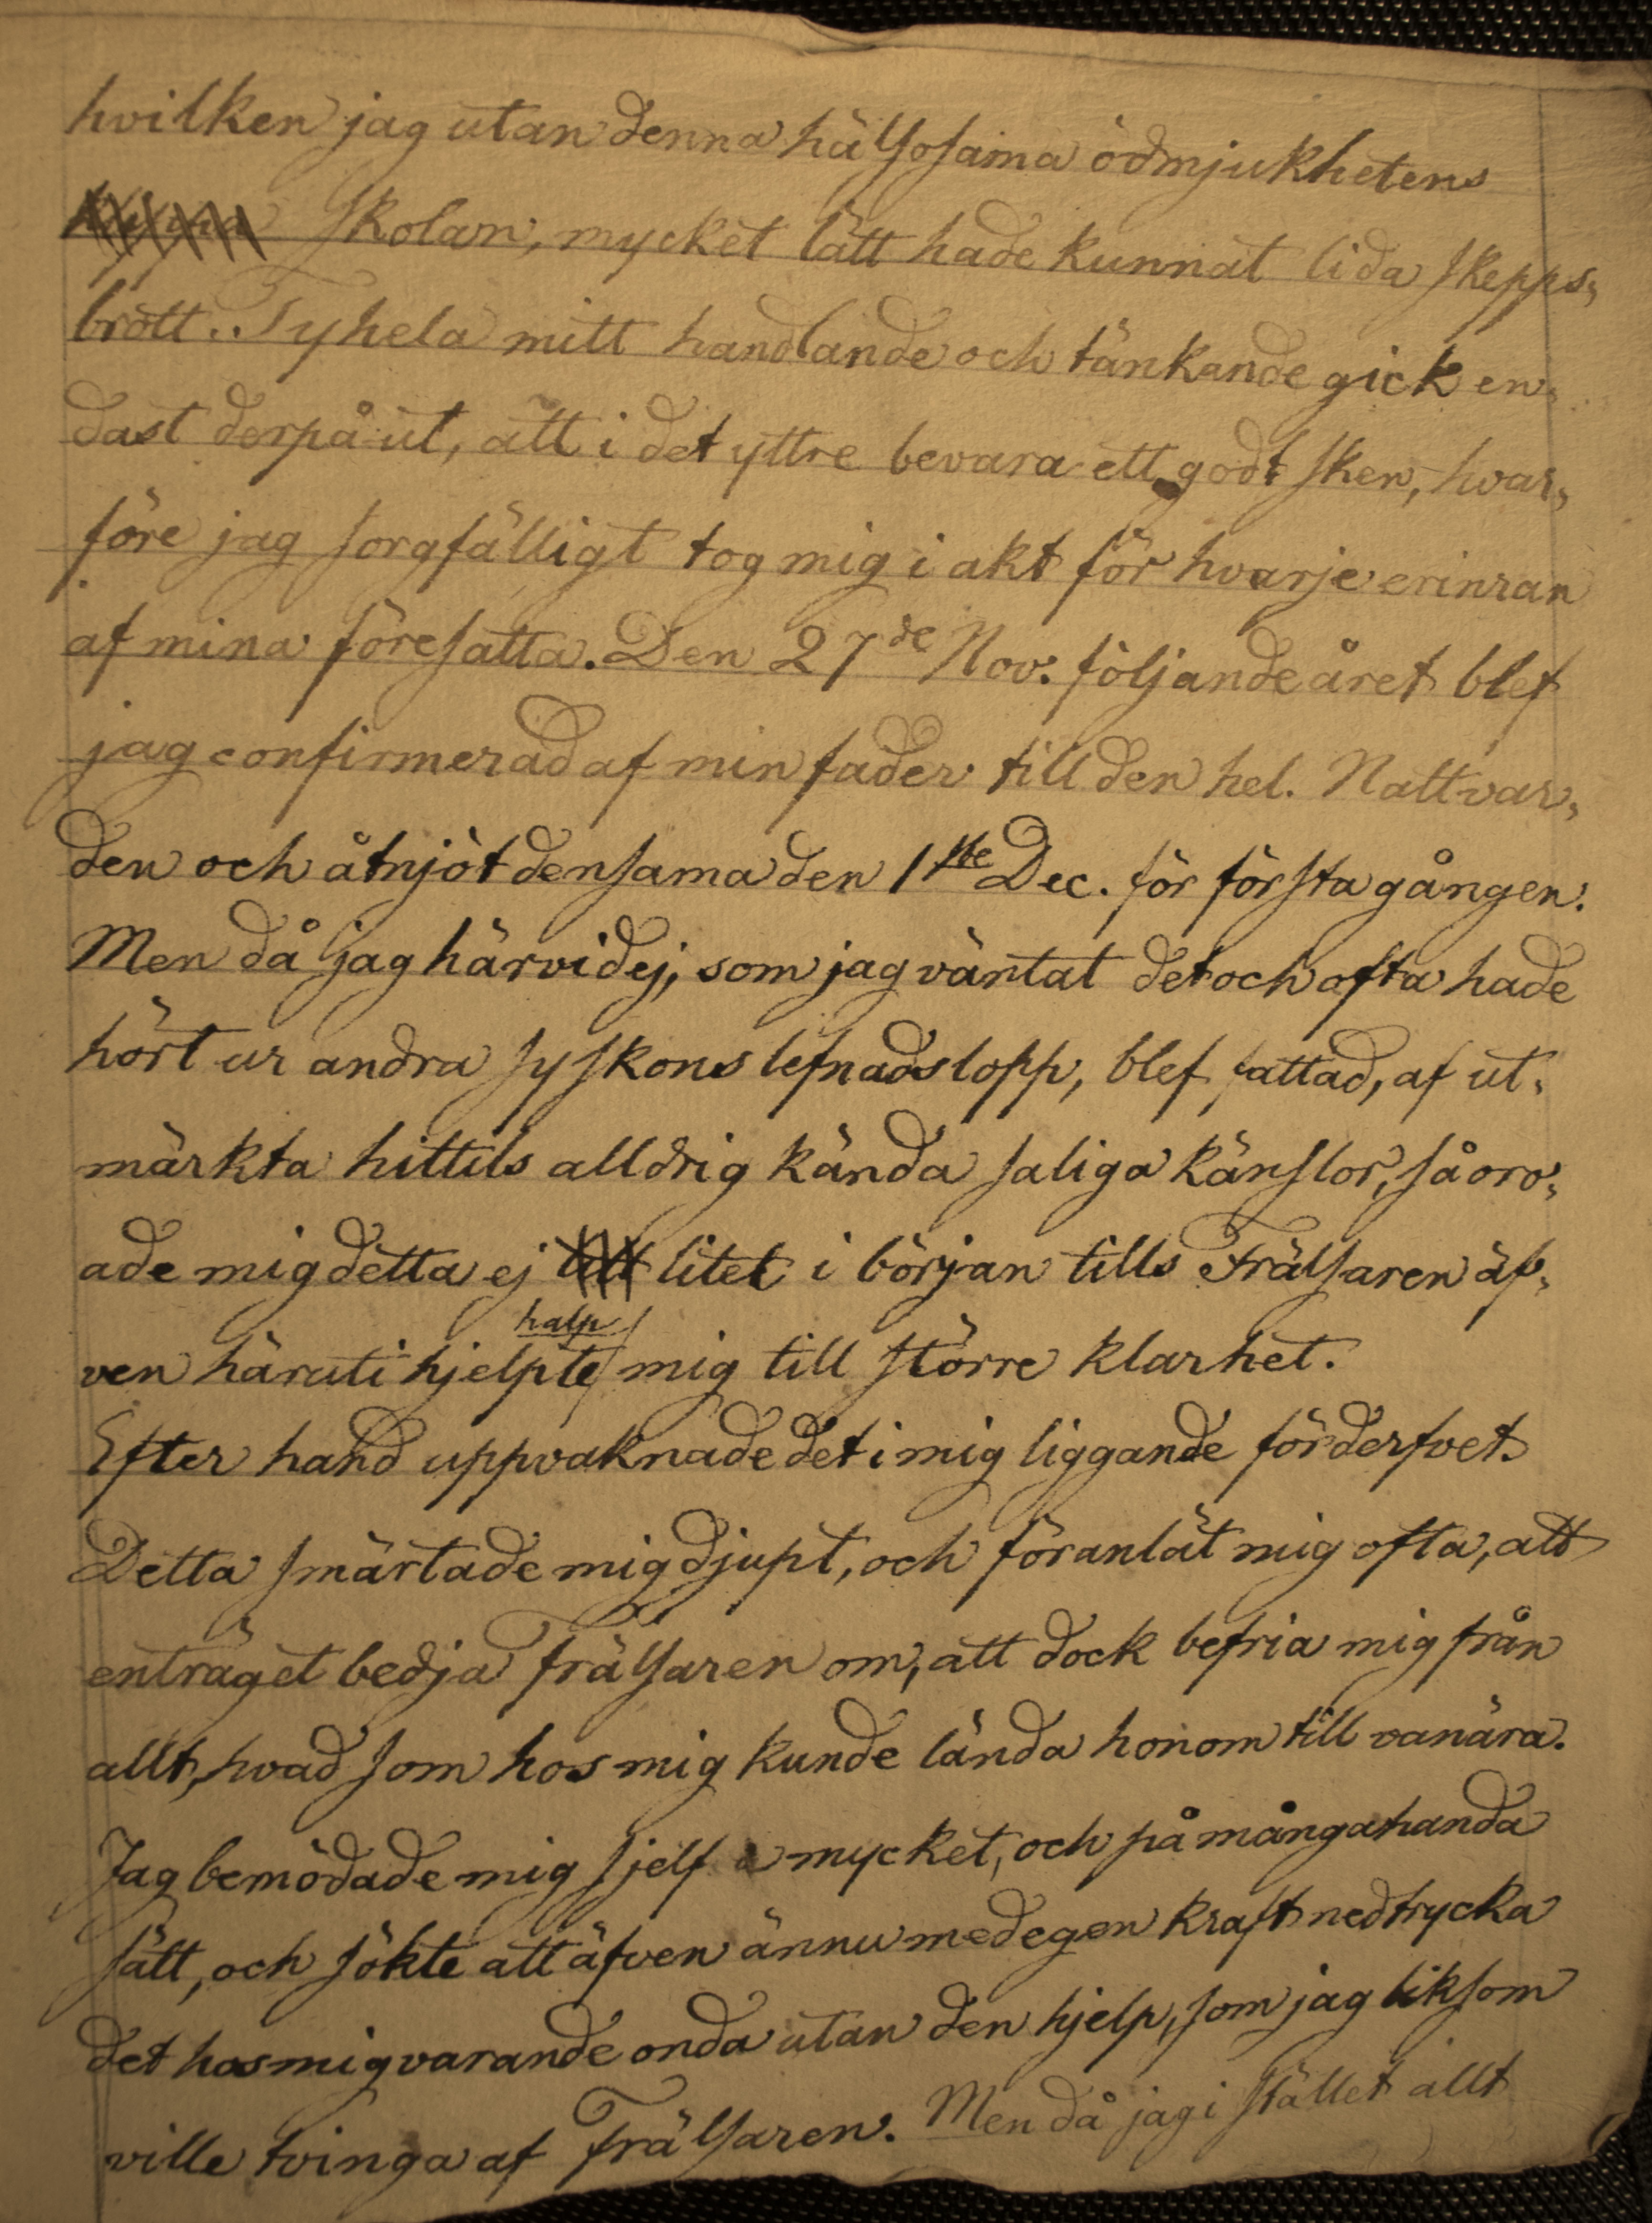 hvilken jag utan denna hälsosama ödmjukhetens
skolan, mycket lätt hade kunnat lida skepps„
brott. Ty hela mitt handlande och tänkande gick en„
dast derpå ut, att i det yttre bevara ett godt sken, hvar„
före jag sorgfälligt tog mig i akt för hvarje erinran
af mina föresatta. Den 27de Nov. följande året blef
jag confirmerad af min fader till den hel. Nattvar„
den och åtnjöt densama den 1ste Dec. för första gången.
Men då jag härvid ej, som jag väntat det och ofta hade
hört ur andra syskons lefnadslopp, blef fattad, af ut„
märkta hittils alldrig kända saliga känslor, så oro„
ade mig detta ej litet i början tills Frälsaren äf„
halp
ven häruti hjelpte mig till större klarhet.
Efter hand uppvaknade det i mig liggande förderfvet.
Detta smärtade mig djupt, och föranlät mig ofta, att
enträget bedja Frälsaren om, att dock befria mig från
allt, hvad som hos mig kunde lända honom till vanära.
Jag bemödade mig sjelf mycket, och på mångahanda
sätt, och sökte att äfven ännu med egen kraft nedtrycka
det hos mig varande onda utan den hjelp, som jag liksom
ville tvinga af Frälsaren. Men då jag i stället allt